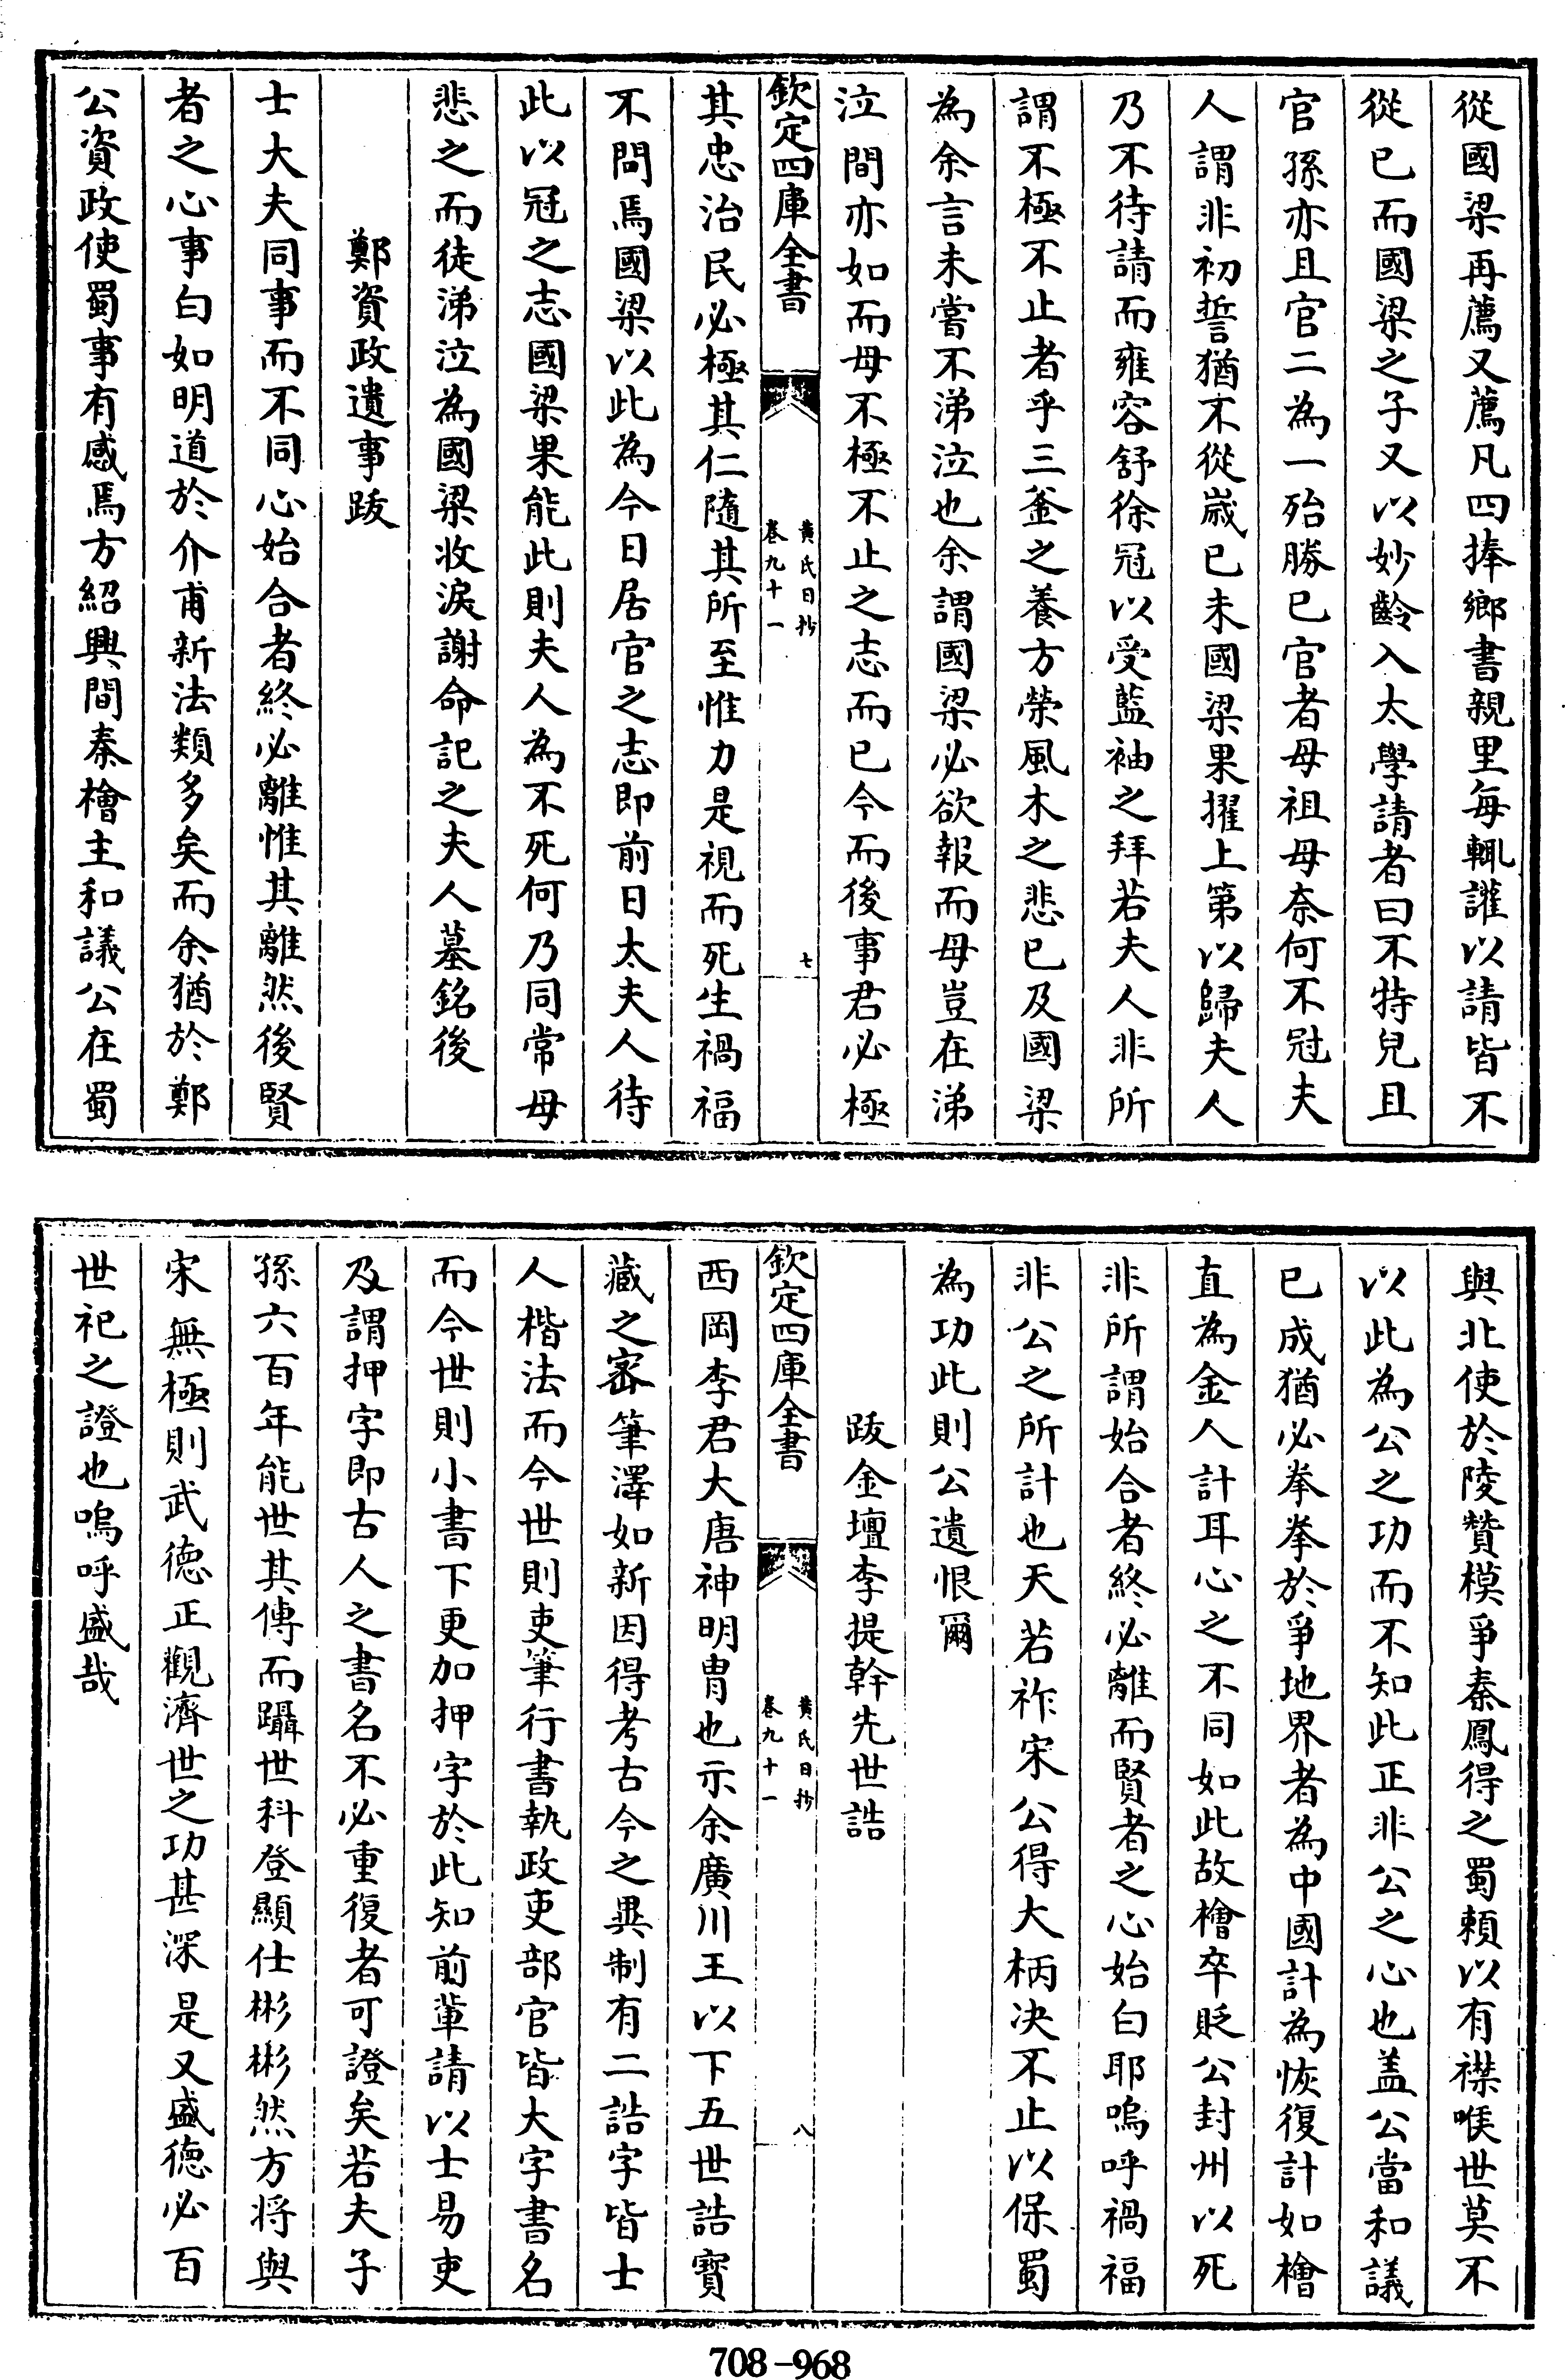 從國梁再薦又薦凡四捧鄉書親里每輒讙以請皆不
從已而國梁之子又以妙齡入太學請者曰不特兒且
官孫亦且官二為一殆勝已官者母祖母奈何不冠夫
人謂非初誓猶不從歲已未國梁果擢上第以歸夫人
乃不待請而雍容舒徐冠以受藍袖之拜若夫人非所
謂不極不止者乎三釜之養方榮風木之悲已及國梁
為余言未嘗不涕泣也余謂國梁必欲報而母豈在涕
泣間亦如而母不極不止之志而已今而後事君必極
欽定四庫全書
黃氏日抄
卷九十一
七
其忠治民必極其仁隨其所至惟力是視而死生禍福
不問焉國梁以此為今日居官之志即前日太夫人待
此以冠之志國梁果能此則夫人為不死何乃同常母
悲之而徒涕泣為國梁收淚謝命記之夫人墓銘後
鄭資政遺事跋
士大夫同事而不同心始合者終必離惟其離然後賢
者之心事白如明道於介甫新法類多矣而余猶於鄭
公資政使蜀事有感焉方紹興間秦檜主和議公在蜀
與北使於陵贊模爭秦鳳得之蜀賴以有襟喉世莫不
以此為公之功而不知此正非公之心也盖公當和議
已成猶必拳拳於爭地界者為中國計為恢復計如檜
直為金人計耳心之不同如此故檜卒貶公封州以死
非所謂始合者終必離而賢者之心始白耶嗚呼禍福
非公之所計也天若祚宋公得大柄决不止以保蜀
為功此則公遺恨爾
跋金壇李提幹先世誥
欽定四庫全書
黃氏日抄
卷九十一
八
西岡李君大唐神明胄也示余廣川王以下五世誥寶
藏之宻筆澤如新因得考古今之異制有二誥字皆士
人楷法而今世則吏筆行書執政吏部官皆大字書名
而今世則小書下更加押字於此知前輩請以士易吏
及謂押字即古人之書名不必重復者可證矣若夫子
孫六百年能世其傳而躡世科登顯仕彬彬然方将與
宋無極則武徳正觀濟世之功甚深是又盛徳必百
世祀之證也嗚呼盛哉
708-968